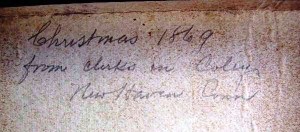 Christmas 1869
from clerks in
New Haven Conn